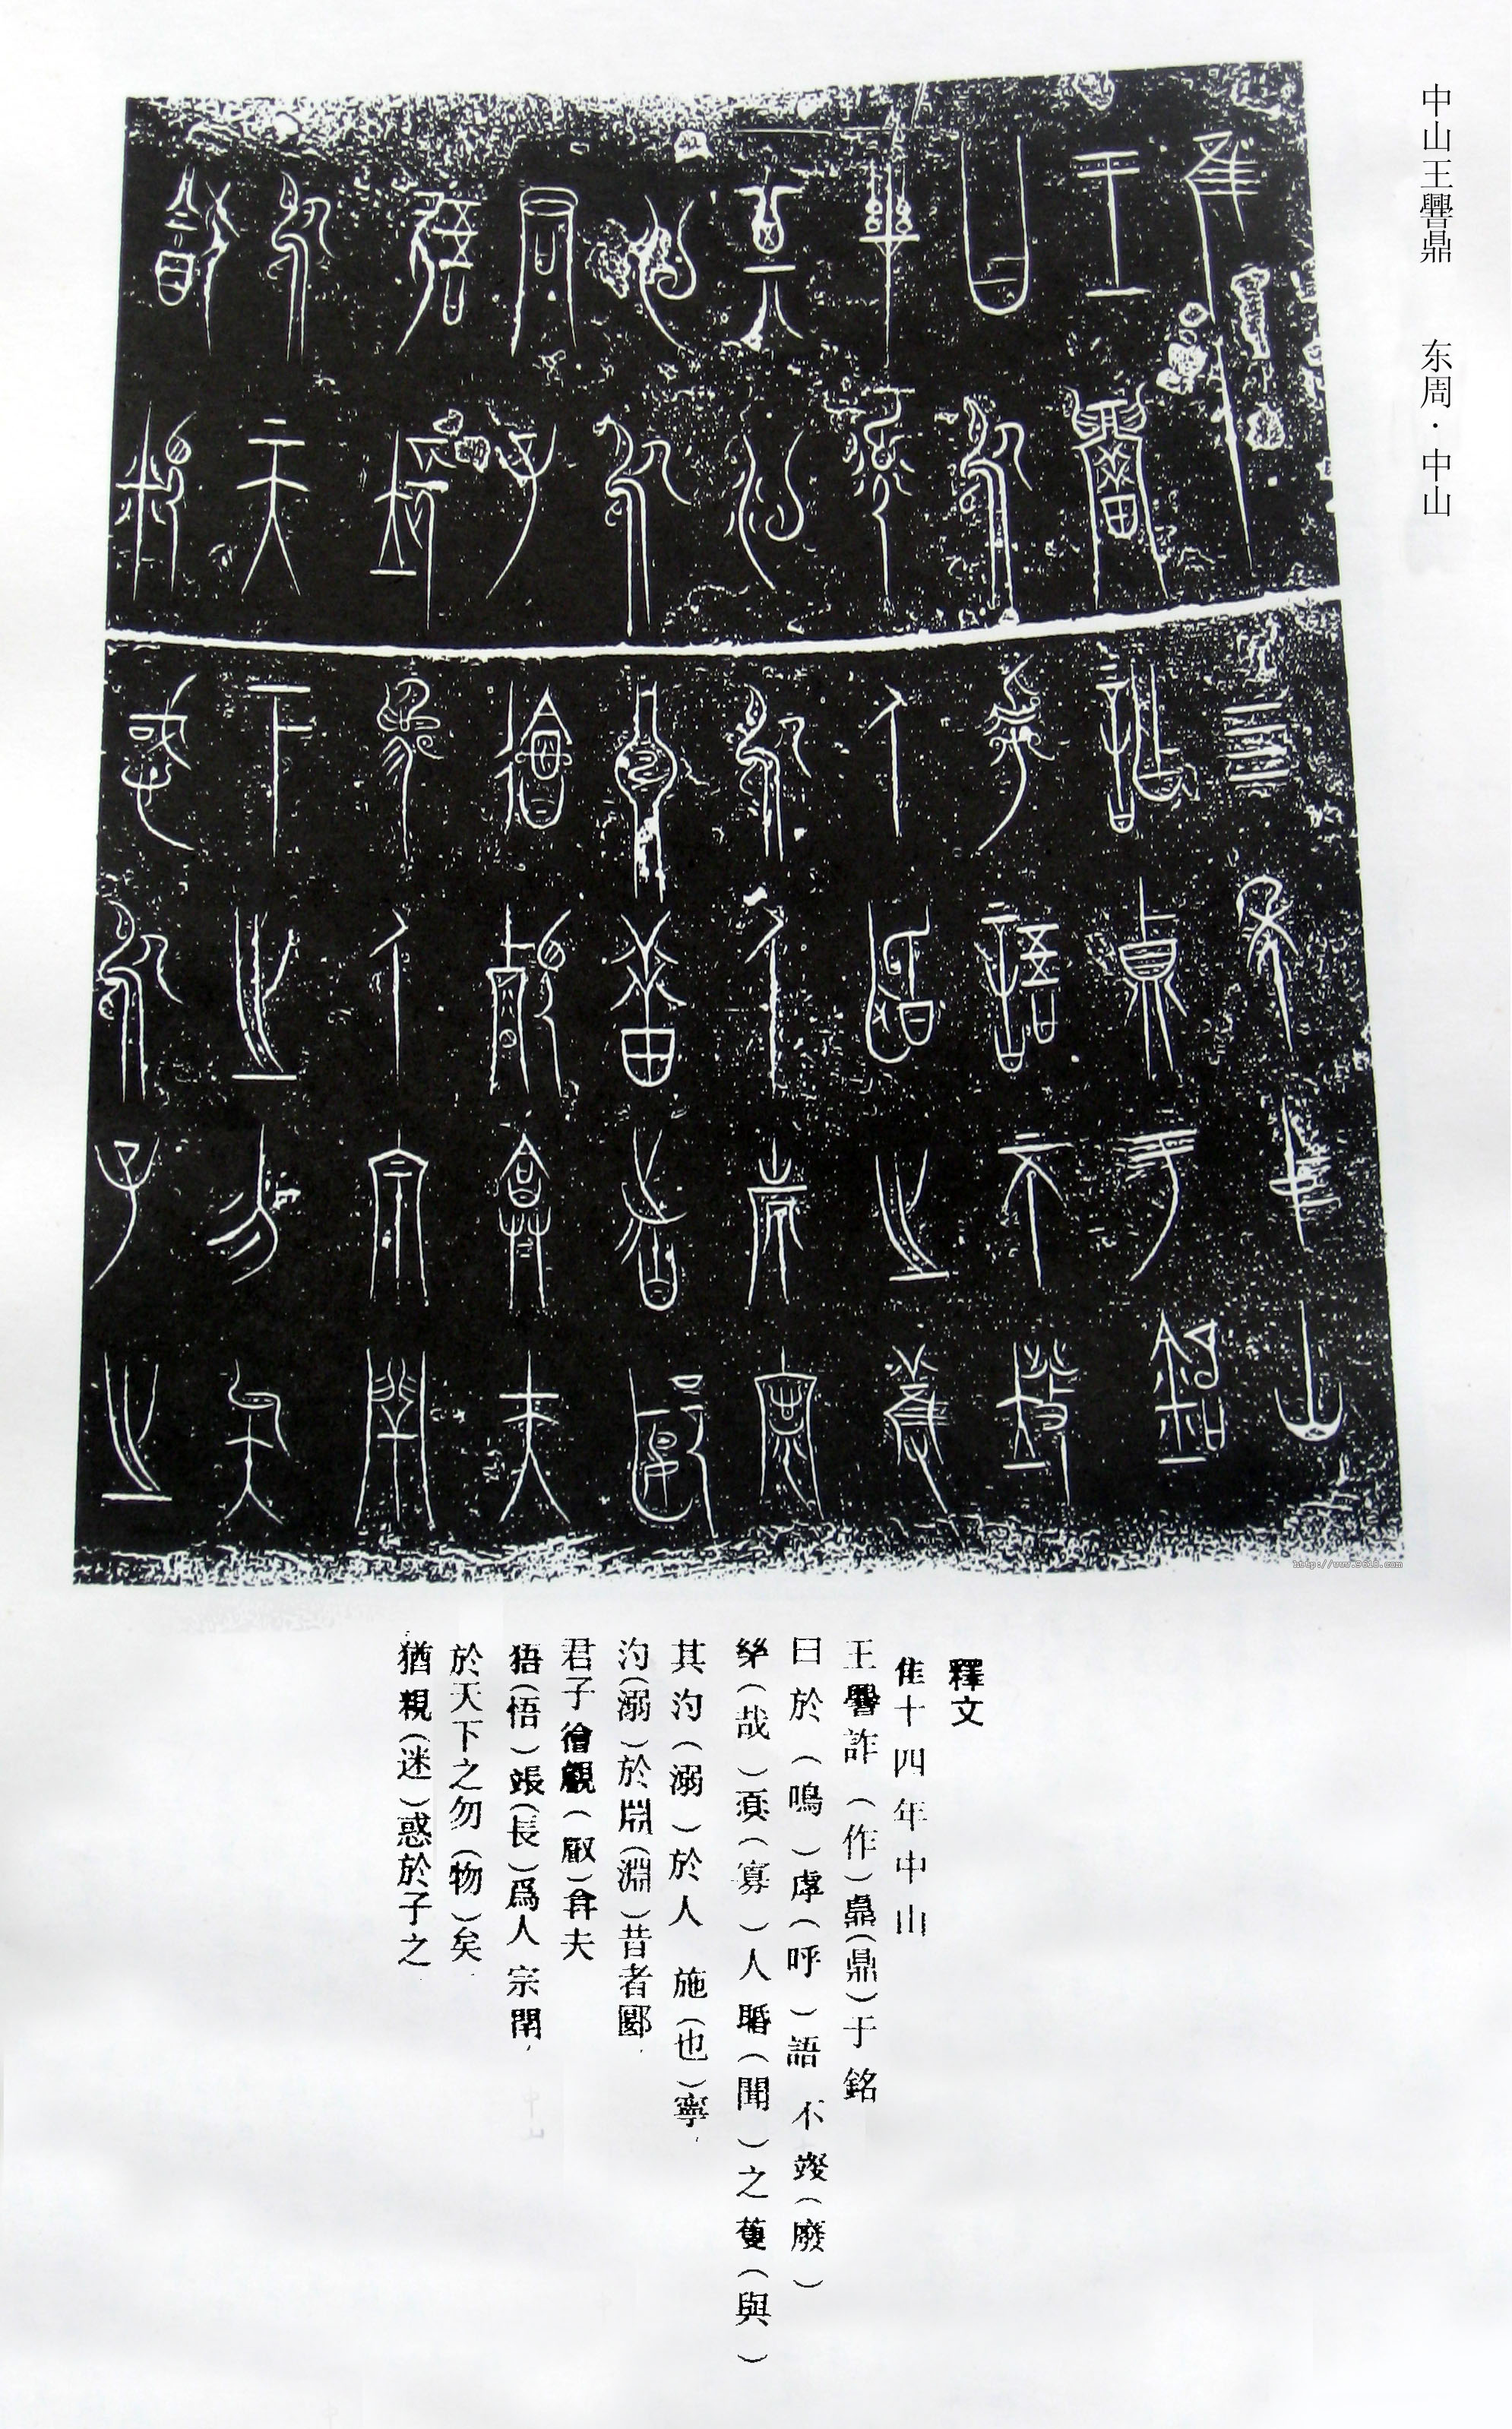 中山王譽鼎 东周·中山
釋文
隹十四年中山
王譽詐（作）鼑（鼎）于銘
曰於（嗚）虖（呼）語不竣（廢）
（哉）寡（寡）人聞（聞）之蒦（與）
其汋（溺）於人施（也）寧
汋（溺）於淵（淵）昔者郾
君子徻觀（叡）弇夫
㹳（悟）張（長）爲人宗閈
於天下之勿（物）矣
猶粯（迷）惑於子之
http://www.9610.com